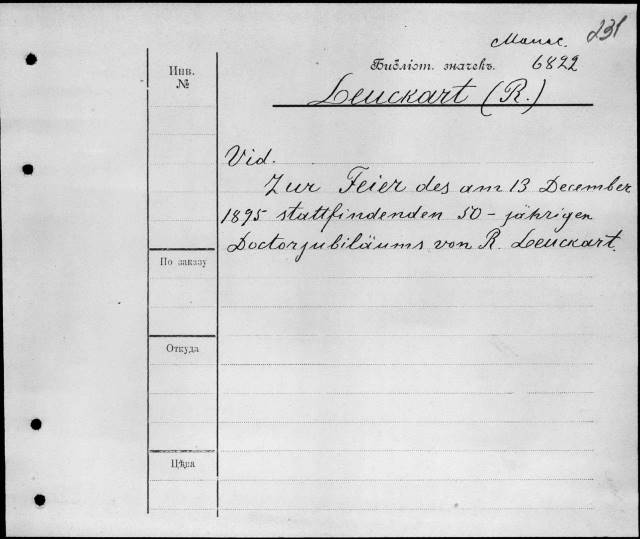 231
Manac.
Библіот. значекъ. 6822
Инв.
№
Leuckart (R.)
Vid.
Zur Feier des am 13 December
1895 stattfindenden 50-jährigen
Doctorjubiläums von R. Leuckart.
По заказу
Откуда
Цѣна